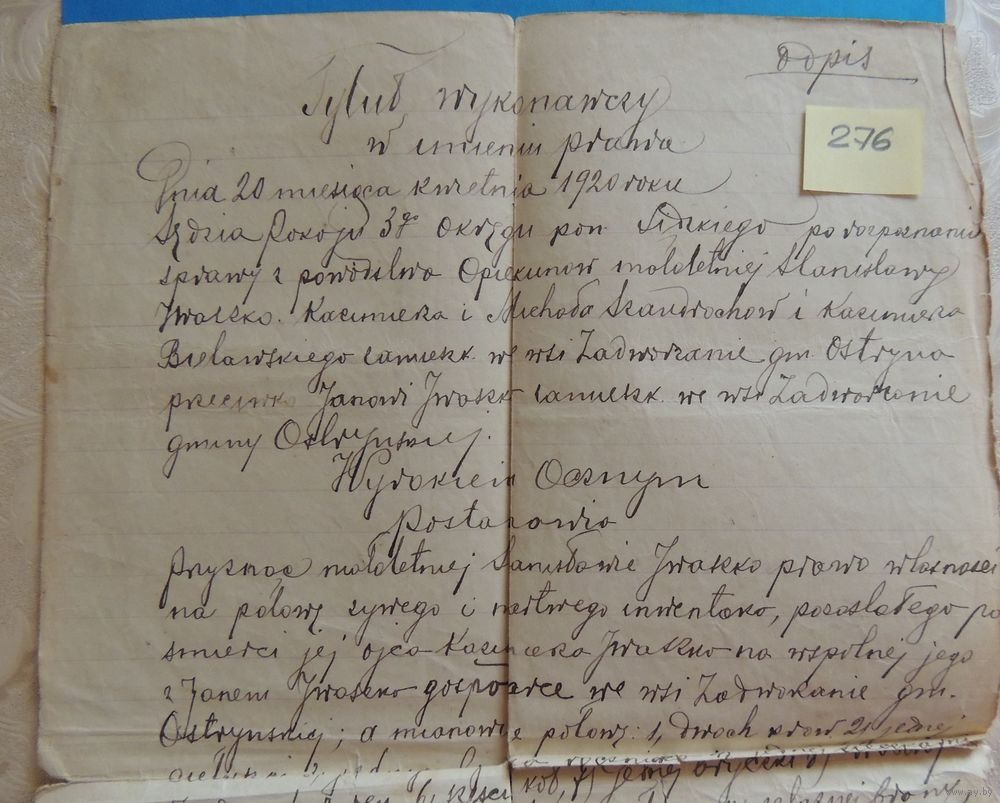 odpis
Tytuł wykonawczy
276
w imieniu prawa
Dnia 20 miesiąca kwietnia 1920 roku
Sędzia Pokoju 3go Okręgu pow. Lidzkiego po rozpoznaniu
sprawy z powództwa Opiekunow małoletniej Stanisławy
Iwaszko. Kazimierza i Michała Szandrochow i Kazimierza
Bielawskiego zamieszk. we wsi Zadworzanie gm. Ostryna
przeciwko Janowi Iwaszko zamieszk. we wsi Zadworzanie
gminy Ostryńskiej.
Wyrokiem Ocznym
Postanowia
Przyznac małoletniej Stanisławie Iwaszko prawo własnosci
na połowę zywego i martwego inwentarza, pozostałego po
smierci jej ojca Kazimierza Iwaszko na wspólnej jego
z Janem Iwaszko gospodarce we wsi Zadworzanie gm.
Ostrynskiej; a mianowicie połowę: 1, dwoch krow 2, jednej
www.ay.by